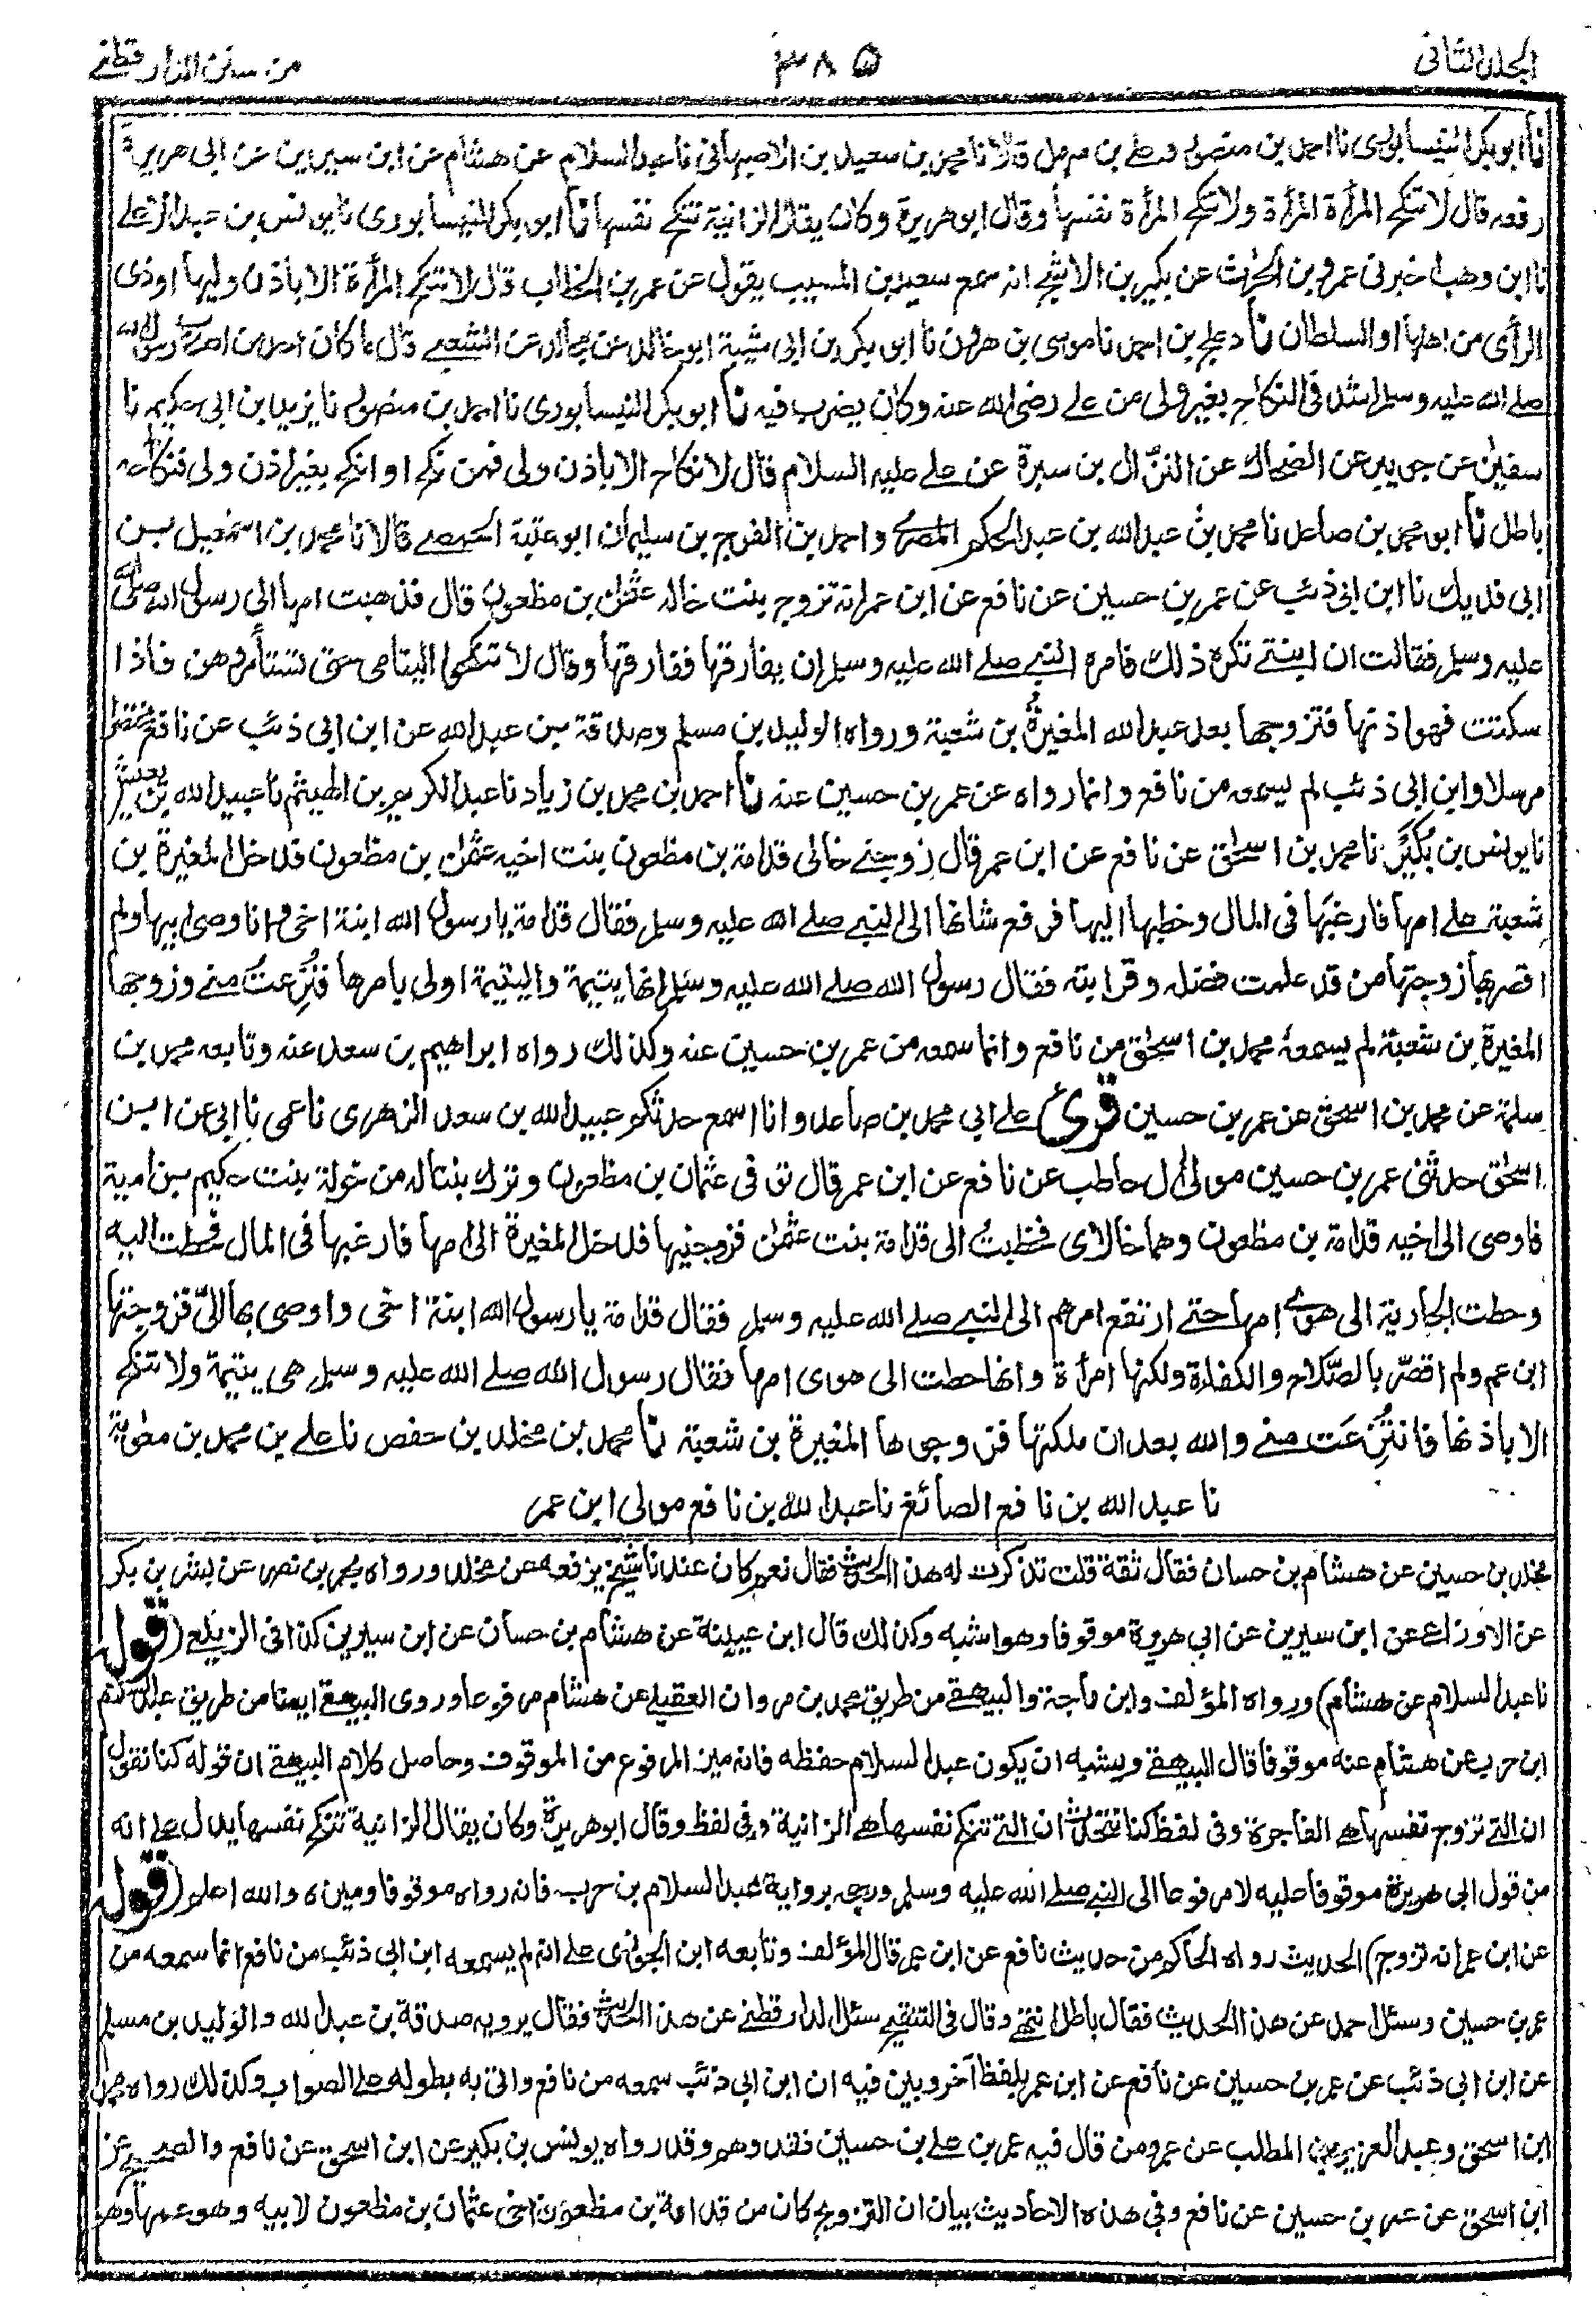 الجلد الثانى
٣٨٥
من سنن الدارقطنے
نا ابو بكر النيسابورى نا احمد بن منصور وعلے بن حرمل قالا نا محمد بن سعيد بن الاصبهانى نا عبد السلام عن هشام عن ابن سيرين عن ابى هريرة
رفعه قال لا تنكح المرأة المرأة ولا تنكح المرأة نفسها وقال ابو هريرة وكان يقال الزانية تنكح نفسها نا ابو بكر النيسابورى نا يونس بن عبد الاعلے
نا ابن وهب اخبرنى عمرو بن الحارث عن بكير بن الاشج انه سمع سعيد بن المسيب يقول عن عمر بن الخطاب قال لا تنكح المرأة الا باذن وليها او ذى
الرأى من اهلها او السلطان نا دعلج بن احمد نا موسى بن هرون نا ابو بكر بن ابى شيبة ابو خالد عن مجالد عن الشعبے قال ما كان احد من اصحاب رسول الله
صلے الله عليه وسلم اشد فى النكاح بغير ولى من علے رضى الله عنه وكان يضرب فيه نا ابو بكر النيسابورى نا احمد بن منصور نا يزيد بن ابى حكيم نا
سفين عن جويبر عن الضحاك عن النزّال بن سبرة عن علے عليه السلام قال لا نكاح الا باذن ولى فمن نكح او انكح بغير اذن ولى فنكاحه
باطل نا ابو محمد بن صاعد نا محمد بن عبد الله بن عبد الحكم المصرى واحمد بن الفرج بن سليمان ابو عتبة الحمصے قالا نا محمد بن اسمعيل بن
ابى فديك نا ابن ابى ذئب عن عمر بن حسين عن نافع عن ابن عمر انه تزوج بنت خاله عثمان بن مظعون قال فذهبت امها الى رسول الله صلى الله
عليه وسلم فقالت ان ابنتے تكره ذلك فامره النبے صلے الله عليه وسلم ان يفارقها ففارقها وقال لا تنكحوا اليتامى حتى تستأمروهن فاذا
سكتت فهو اذنها فتزوجها بعد عبد الله المغيرة بن شعبة ورواه الوليد بن مسلم وصدقة بن عبد الله عن ابن ابى ذئب عن نافع مختصرا
مرسلا وابن ابى ذئب لم يسمعه من نافع وانما رواه عن عمر بن حسين عنه نا احمد بن محمد بن زياد نا عبد الكريم بن الهيثم نا عبيد الله بن يعيش
نا يونس بن بُكَير نا محمد بن اسحٰق عن نافع عن ابن عمر قال زوجنے خالى قدامة بن مظعون بنت اخيه عثمان بن مظعون فدخل المغيرة بن
شعبة علے امها فارغبَها فى المال وخطبها اليها فرفع شانها الى النبے صلے الله عليه وسلم فقال قدامة يا رسول الله ابنة اخى وانا وصى ابيها ولم
اقصر بها زوجتها من قد علمت فضله وقرابته فقال رسول الله صلے الله عليه وسلم انها يتيمة واليتيمة اولى بامرها فنُزِعَتْ منے وزوجها
المغيرة بن شعبة لم يسمعه محمد بن اسحٰق من نافع وانما سمعه من عمر بن حسين عنه وكذلك رواه ابراهيم بن سعد عنه وتابعه محمد بن
سلمة عن محمد بن اسحق عن عمر بن حسين قرئ علے ابى محمد بن صاعد وانا اسمع حدثكم عبيد الله بن سعد الزهرى نا عمى نا ابى عن ابن
اسحٰق حدثنى عمر بن حسين مولى اٰل حاطب عن نافع عن ابن عمر قال توفى عثمان بن مظعون وترك بنتا له من خولة بنت حكيم بن امية
فاوصى الى اخيه قدامة بن مظعون وهما خالاى فخطبتُ الى قدامة بنت عثمٰن فزوجنيها فدخل المغيرة الى امها فارغبها فى المال فحطت اليه
وحطت الجارية الى هوى امها حتے ارتفع امرهم الى النبے صلے الله عليه وسلم فقال قدامة يا رسول الله ابنة اخى واوصى بها الىّ فزوجتها
ابن عم ولم اقصّر بالصَّلاح والكفاءة ولكنها امرأة وانها حطت الى هوى امها فقال رسول الله صلے الله عليه وسلم هى يتيمة ولا تنكح
الا باذنها فانتُزِعَت منے والله بعد ان ملكتها فزوجوها المغيرة بن شعبة نا محمد بن مخلد بن حفص نا علے بن محمد بن معوية
نا عبد الله بن نافع الصائغ نا عبد الله بن نافع مولى ابن عمر
مخلد بن حسين عن هشام بن حسان فقال ثقة قلت تذكرت له هذا الحديث فقال نعم كان عندنا شيخ يرفعه عن مخلد ورواه محمد بن نصر عن بشر بن بكر
عن الاوزاعے عن ابن سيرين عن ابى هريرة موقوفا وهو اشبه وكذلك قال ابن عيينة عن هشام بن حسان عن ابن سيرين كذا فى الزيلعے (قوله
نا عبد السلام عن هشام) ورواه المؤلف وابن ماجة والبيهقے من طريق محمد بن مروان العقيلے عن هشام مرفوعا وروى البيهقے ايضا من طريق عبد السلام
ابن حرب عن هشام عنه موقوفا قال البيهقے ويشبه ان يكون عبد السلام حفظه فانه ميز المرفوع من الموقوف وحاصل كلام البيهقے ان قوله كنا نقول
ان التے تزوج نفسها هے الفاجرة وفى لفظ كنا نتحدث ان التے تنكح نفسها هے الزانية وفى لفظ وقال ابو هريرة وكان يقال الزانية تنكح نفسها يدل علے انه
من قول ابى هريرة موقوفا عليه لا مرفوعا الى النبے صلے الله عليه وسلم ورجحه برواية عبد السلام بن حرب فانه رواه موقوفا وميزه والله اعلم (قوله
عن ابن عمر انه تزوج) الحديث رواه الحاكم من حديث نافع عن ابن عمر قال المؤلف وتابعه ابن الجوزى علے انه لم يسمعه ابن ابى ذئب من نافع انما سمعه من
عمر بن حسين وسئل احمد عن هذا الحديث فقال باطل انتهے وقال فى التنقيح سئل الدارقطنے عن هذا الحديث فقال يرويه صدقة بن عبد الله والوليد بن مسلم
عن ابن ابى ذئب عن عمر بن حسين عن نافع عن ابن عمر بلفظ آخر وبين فيه ان ابن ابى ذئب سمعه من نافع واتى به بطوله علے الصواب وكذلك رواه محمد
ابن اسحق وعبد العزيز بن المطلب عن عمر ومن قال فيه عمر بن علے بن حسين فقد وهم وقد رواه يونس بن بكير عن ابن اسحق عن نافع والصحيح عن
ابن اسحق عن عمر بن حسين عن نافع وفى هذه الاحاديث بيان ان التزويج كان من قدامة بن مظعون اخى عثمان بن مظعون لابيه وهو عمها وهو